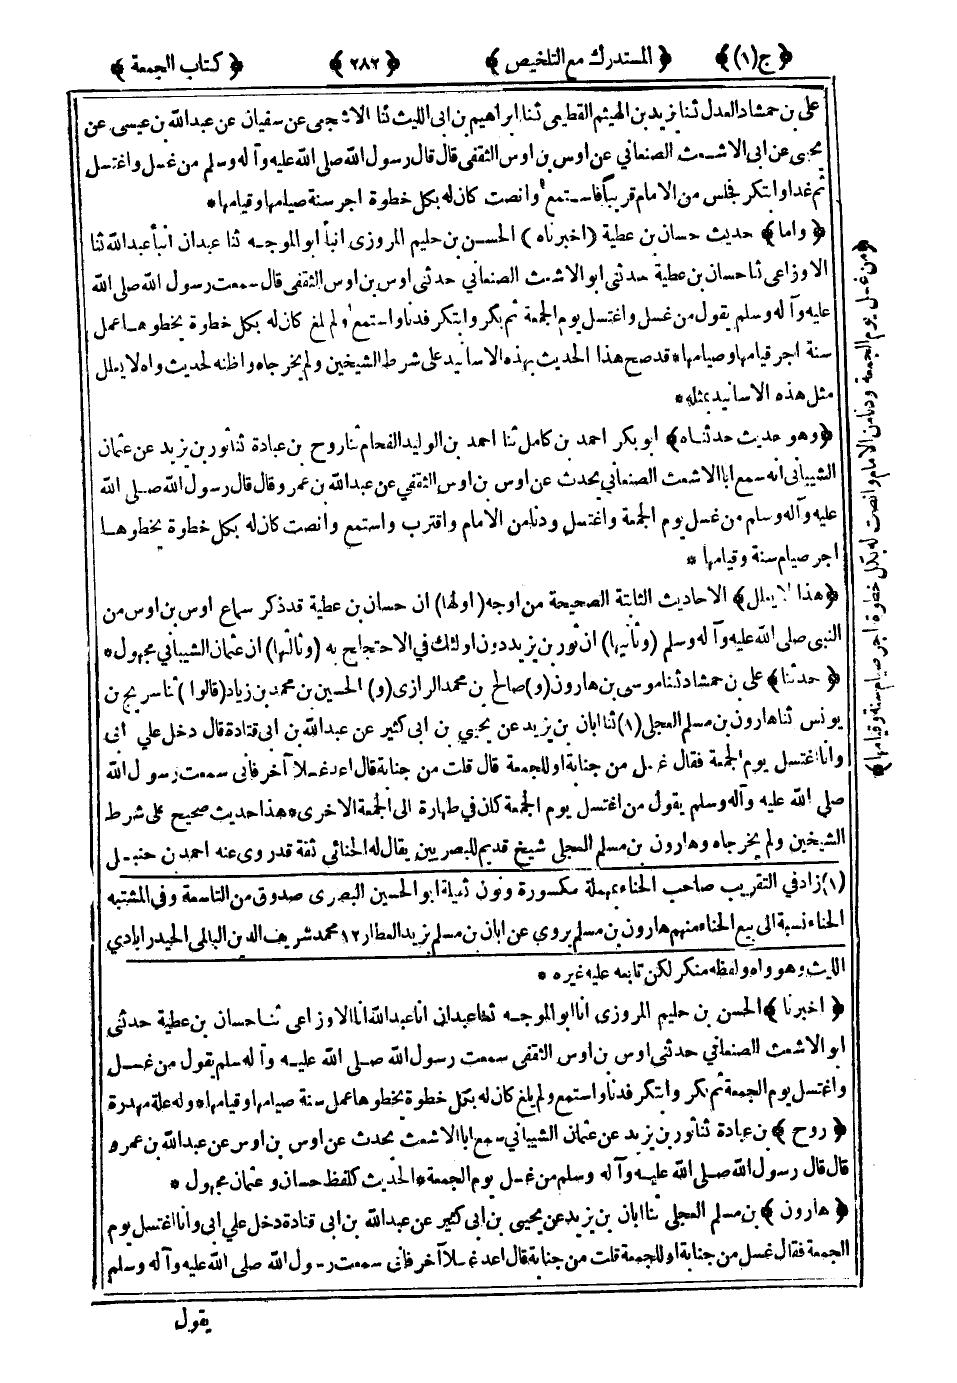 ﴿ ج (١) ﴾ ﴿ المستدرك مع التلخيص ﴾ ﴿ ٢٨٢ ﴾ ﴿ كتاب الجمعة ﴾
على بن حمشاد العدل ثنا يزيد بن الهيثم القطيعى ثنا ابراهيم بن ابى الليث ثنا الاشجعى عن سفيان عن عبدالله بن عيسى عن
يحيى عن ابى الاشعث الصنعاني عن اوس بن اوس الثقفى قال قال رسول الله صلى الله عليه وآله وسلم من غسل واغتسل
ثم غدا وابتكر فجلس من الامام قريبا فاستمع وانصت كان له بكل خطوة اجر سنة صيامها وقيامها *
﴿ واما ﴾ حديث حسان بن عطية (اخبرناه) الحسن بن حليم المروزى انبأ ابو الموجه ثنا عبدان انبأ عبدالله ثنا
الاوزاعى ثنا حسان بن عطية حدثنى ابو الاشعث الصنعاني حدثنى اوس بن اوس الثقفى قال سمعت رسول الله صلى الله
عليه وآله وسلم يقول من غسل واغتسل يوم الجمعة ثم بكر وابتكر فدنا واستمع ولم يلغ كان له بكل خطوة يخطوها عمل
سنة اجر قيامها وصيامها * قد صح هذا الحديث بهذه الاسانيد على شرط الشيخين ولم يخرجاه واظنه لحديث واه لا يعلل
مثل هذه الاسانيد بمثله *
﴿ وهو حديث حدثناه ﴾ ابو بكر احمد بن كامل ثنا احمد بن الوليد الفحام ثنا روح بن عبادة ثنا ثور بن يزيد عن عثمان
الشيبانى انه سمع ابا الاشعث الصنعاني يحدث عن اوس بن اوس الثقفي عن عبدالله بن عمرو قال قال رسول الله صلى الله
عليه وآله وسلم من غسل يوم الجمعة واغتسل ودنا من الامام واقترب واستمع وانصت كان له بكل خطوة يخطوها
اجر صيام سنة وقيامها *
﴿ هذا لا يعلل ﴾ الاحاديث الثابتة الصحيحة من اوجه (اولها) ان حسان بن عطية قد ذكر سماع اوس بن اوس من
النبى صلى الله عليه وآله وسلم (وثانيها) ان ثور بن يزيد دون اولئك في الاحتجاج به (وثالثها) ان عثمان الشيبانى مجهول *
﴿ حدثنا ﴾ على بن حمشاد ثنا موسى بن هارون (و) صالح بن محمد الرازى (و) الحسين بن محمد بن زياد (قالوا) ثنا سريج بن
يونس ثنا هارون بن مسلم العجلى (١) ثنا ابان بن يزيد عن يحيي بن ابى كثير عن عبدالله بن ابى قتادة قال دخل علي ابى
وانا اغتسل يوم الجمعة فقال غسل من جنابة او للجمعة قال قلت من جنابة قال اعد غسلا آخر فانى سمعت رسول الله
صلى الله عليه وآله وسلم يقول من اغتسل يوم الجمعة كان في طهارة الى الجمعة الاخرى * هذا حديث صحيح على شرط
الشيخين ولم يخرجاه وهارون بن مسلم العجلى شيخ قديم للبصريين يقال له الحنائى ثقة قد روى عنه احمد بن حنبل
(١) زاد في التقريب صاحب الحناء بمهملة مكسورة ونون ثقيلة ابو الحسين البصرى صدوق من التاسعة وفي المشتبه
الحناء نسبة الى بيع الحناء منهم هارون بن مسلم يروي عن ابان بن مسلم يزيد العطار ١٢ محمد شريف الدين الحيدرابادي
الليث وهو واه ولفظه منكر لكن تابعه عليه غيره *
﴿ اخبرنا ﴾ الحسن بن حليم المروزى انا ابو الموجه ثنا عبدان انا عبدالله انا الاوزاعى ثنا حسان بن عطية حدثنى
ابو الاشعث الصنعاني حدثنى اوس بن اوس الثقفى سمعت رسول الله صلى الله عليه وآله وسلم يقول من غسل
واغتسل يوم الجمعة ثم بكر وابتكر فدنا واستمع ولم يلغ كان له بكل خطوة يخطوها عمل سنة صيامها وقيامها * وله علة مهدرة
﴿ روح ﴾ بن عبادة ثنا ثور بن يزيد عن عثمان الشيبانى سمع ابا الاشعث يحدث عن اوس بن اوس عن عبدالله بن عمرو
قال قال رسول الله صلى الله عليه وآله وسلم من غسل يوم الجمعة * الحديث كلفظ حسان وعثمان مجهول *
﴿ هارون ﴾ بن مسلم العجلى ثنا ابان بن يزيد عن يحيى بن ابى كثير عن عبدالله بن ابى قتادة دخل علي ابى وانا اغتسل يوم
الجمعة فقال غسل من جنابة او للجمعة قلت من جنابة قال اعد غسلا آخر فأنى سمعت رسول الله صلى الله عليه وآله وسلم
يقول
﴿ من غسل يوم الجمعة ودنا من الامام وانصت له بكل خطوة اجر صيام سنة وقيامها ﴾